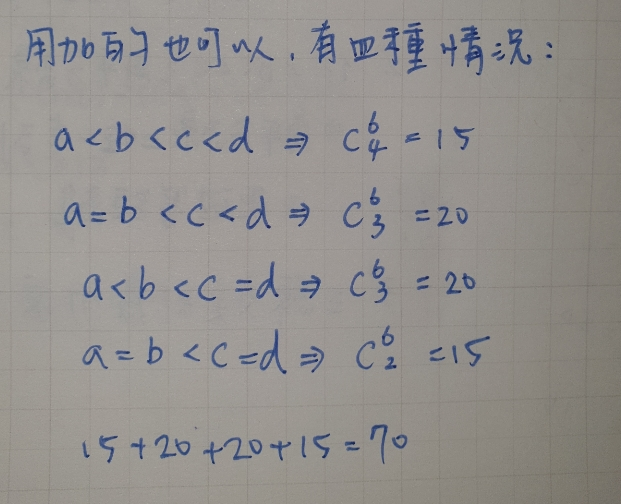 用加的也可以,有四種情況:
a<b<c<d ⇒ C⁶₄ = 15
a=b<c<d ⇒ C⁶₃ = 20
a<b<c=d ⇒ C⁶₃ = 20
a=b<c=d ⇒ C⁶₂ = 15
15+20+20+15=70